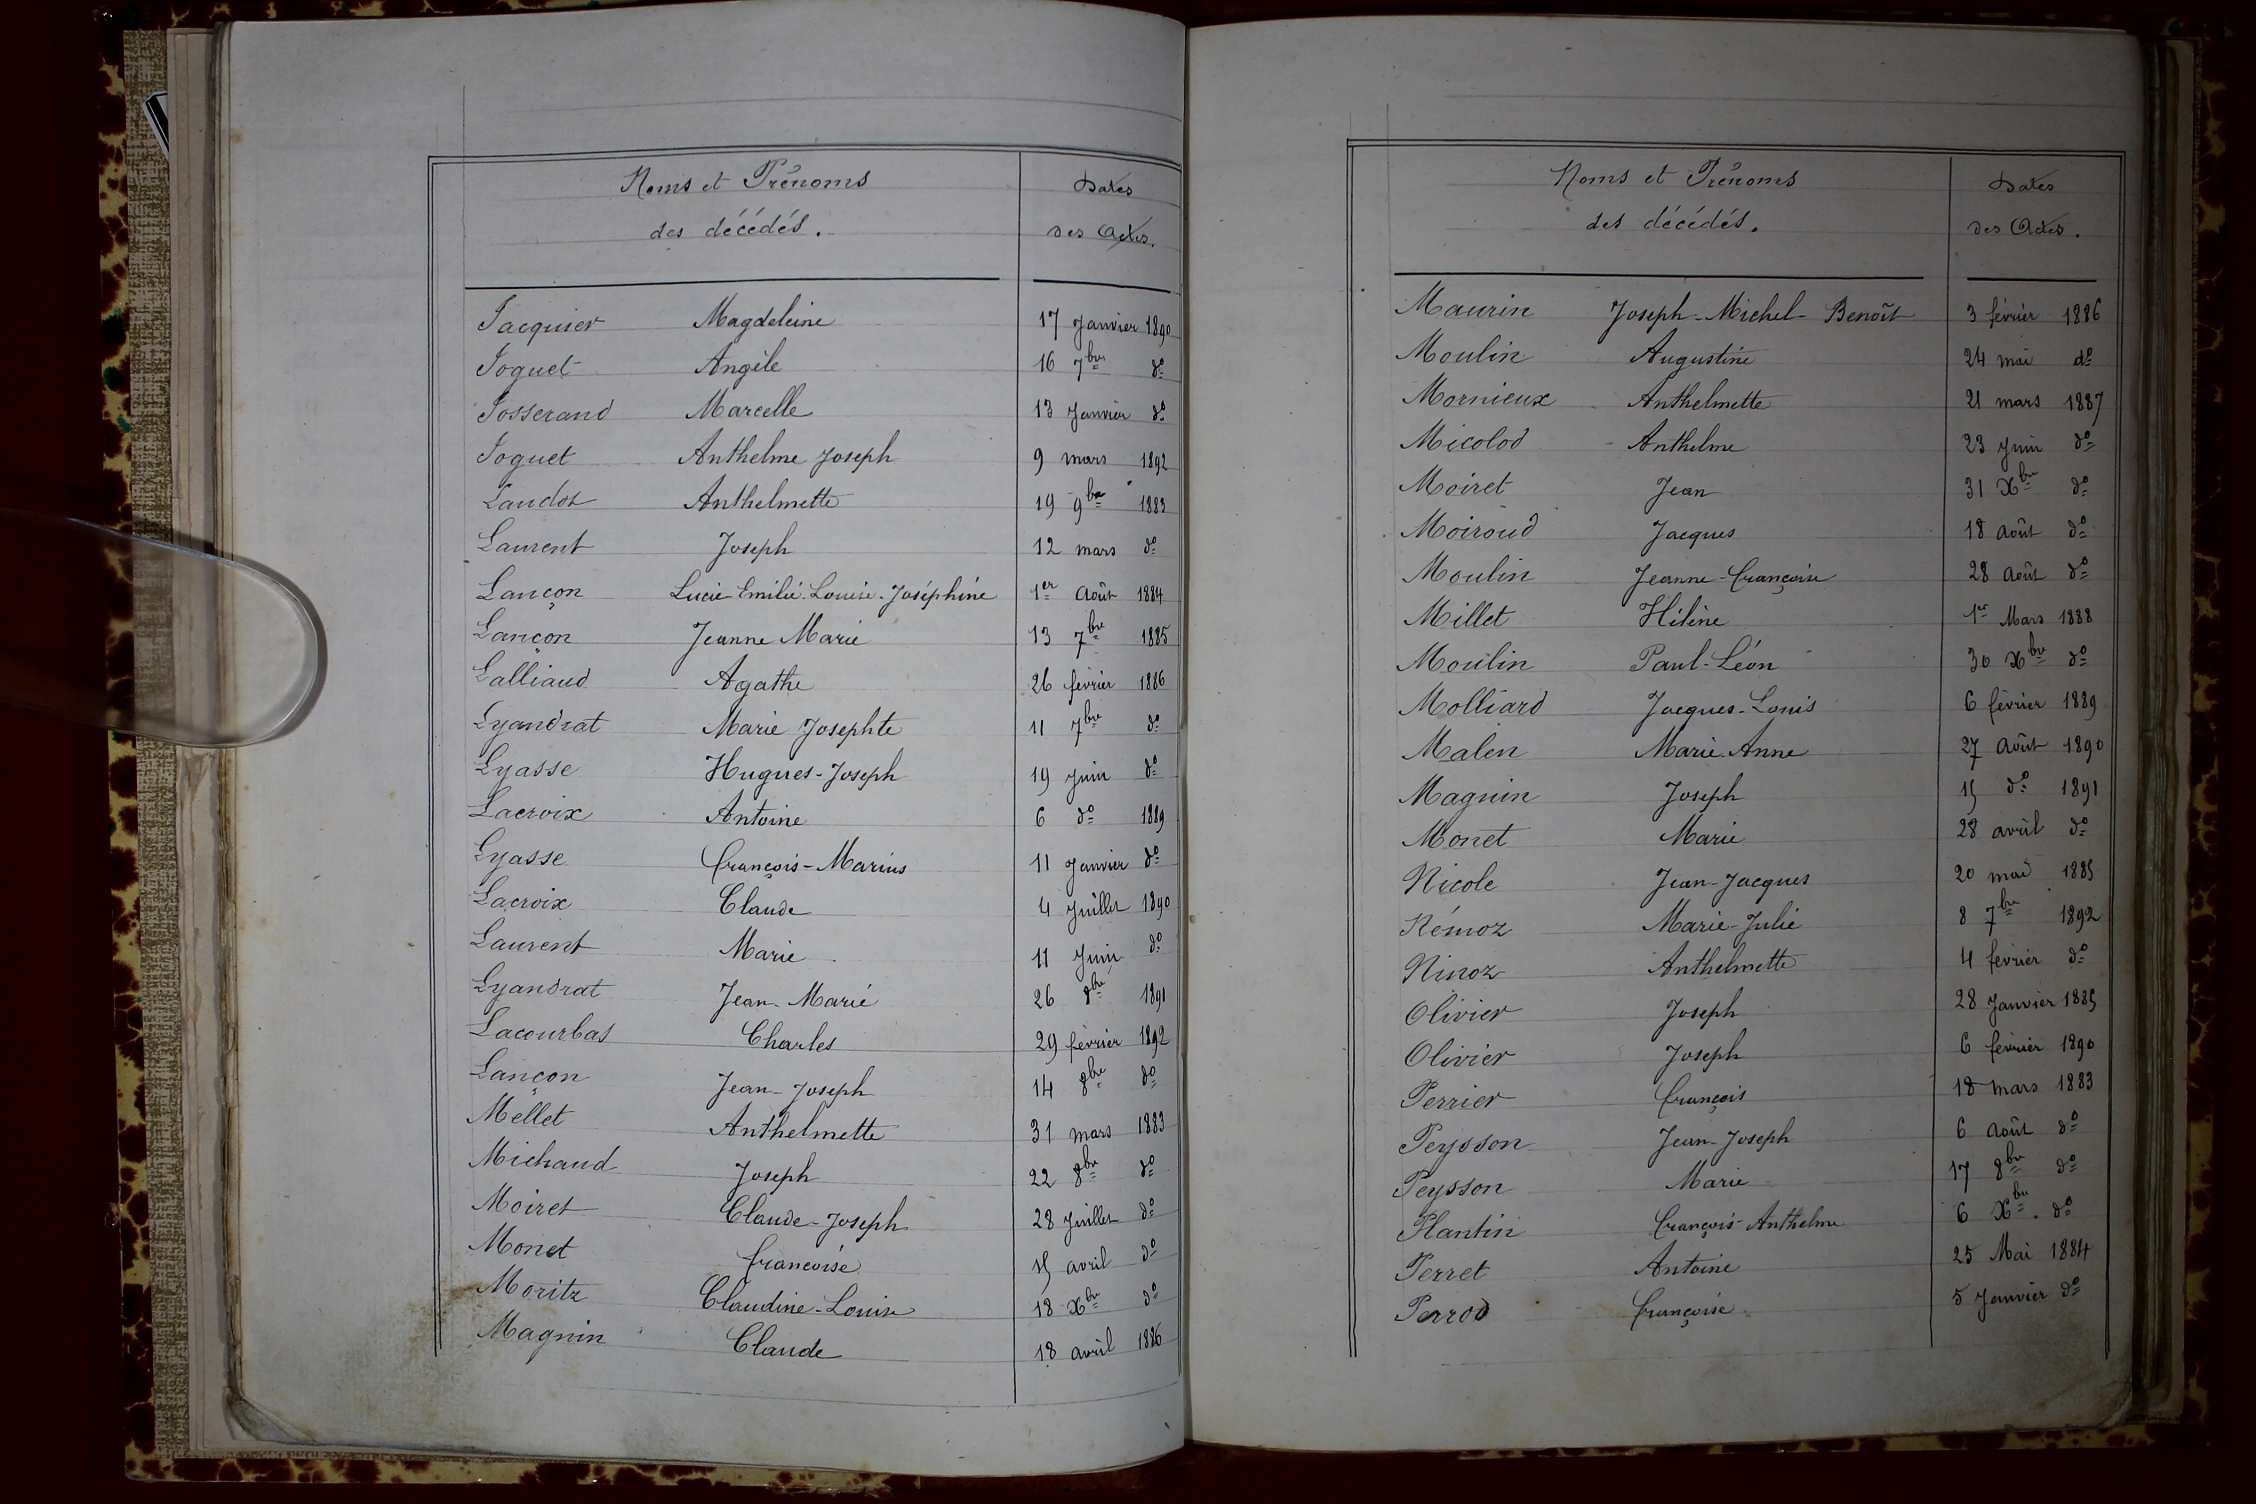 Noms et Prénoms Dates
des décédés. des Actes.
Jacquier Magdeleine 17 Janvier 1890
Joguet Angèle 16 7bre do
Josserand Marcelle 13 Janvier do
Joguet Anthelme Joseph 9 mars 1892
Landot Anthelmette 19 9bre 1883
Laurent Joseph 12 mars do
Lançon Lucie Emilie Louise Joséphine 1er Août 1884
Lançon Jeanne Marie 13 7bre 1885
Lalliaud Agathe 26 février 1886
Lyandrat Marie Josephte 11 7bre do
Lyasse Hugues-Joseph 19 Juin do
Lacroix Antoine 6 do 1889
Lyasse François-Marius 11 Janvier do
Lacroix Claude 4 Juillet 1890
Laurent Marie 11 Juin do
Lyandrat Jean-Marie 26 8bre 1891
Lacourbas Charles 29 février 1892
Lançon Jean-Joseph 14 8bre do
Mellet Anthelmette 31 mars 1883
Michaud Joseph 22 8bre do
Moiret Claude-Joseph 28 Juillet do
Monet francoise 15 avril do
Moritz Claudine-Louise 18 Xbre do
Magnin Claude 18 avril 1886
Noms et Prénoms Dates
des décédés. des Actes.
Maurin Joseph-Michel-Benoît 3 février 1886
Moulin Augustine 24 mai do
Mornieux Anthelmette 21 mars 1887
Micolod Anthelme 23 Juin do
Moiret Jean 31 Xbre do
Moiroud Jacques 18 Août do
Moulin Jeanne-Françoise 28 Août do
Millet Hélène 1er Mars 1888
Moulin Paul-Léon 30 Xbre do
Molliard Jacques-Louis 6 février 1889
Malen Marie-Anne 27 Août 1890
Magnin Joseph 15 do 1891
Monet Marie 28 avril do
Nicole Jean-Jacques 20 mai 1885
Némoz Marie-Julie 8 7bre 1892
Ninoz Anthelmette 4 février do
Olivier Joseph 28 Janvier 1885
Olivier Joseph 6 février 1890
Perrier François 18 mars 1883
Peysson Jean-Joseph 6 Août do
Peysson Marie 17 8bre do
Plantin François-Anthelme 6 Xbre. do
Perret Antoine 25 Mai 1884
Perrod Françoise 5 Janvier do